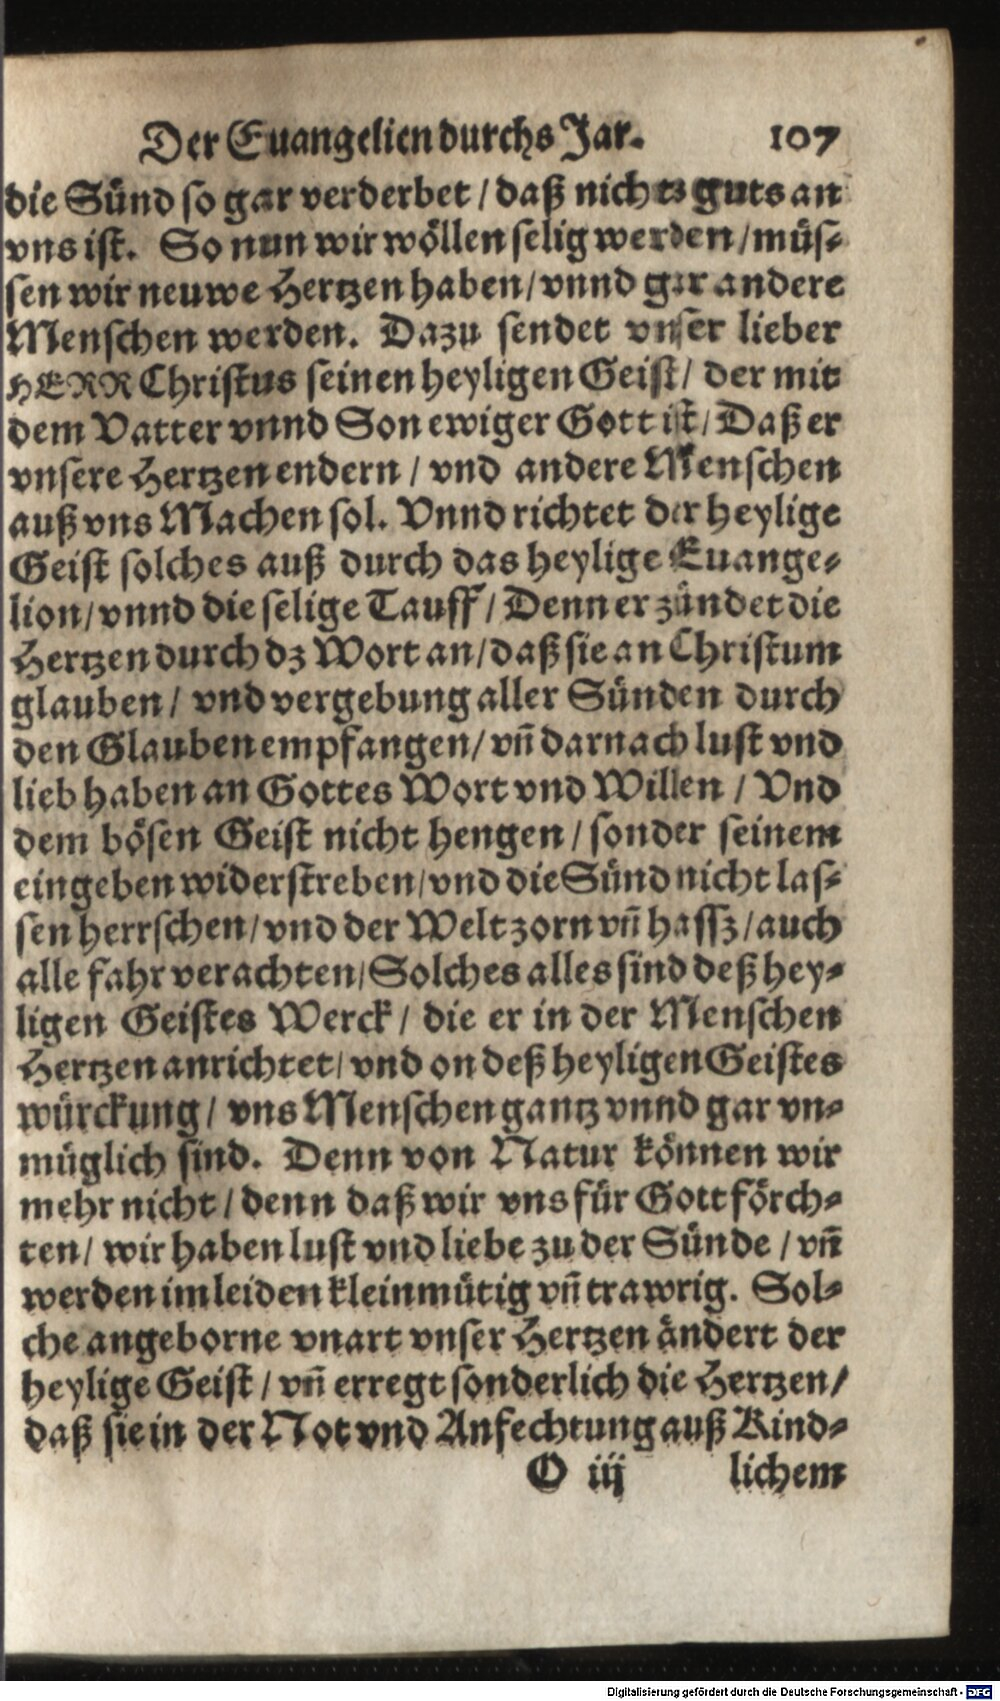 Der Euangelien durchs Jar. 107
die Sünd so gar verderbet / daß nichts guts an
vns ist. So nun wir wöllen selig werden / müs-
sen wir neuwe Hertzen haben / vnnd gar andere
Menschen werden. Dazu sendet vnser lieber
HERR Christus seinen heyligen Geist / der mit
dem Vatter vnnd Son ewiger Gott ist / Daß er
vnsere Hertzen endern / vnd andere Menschen
auß vns Machen sol. Vnnd richtet der heylige
Geist solches auß durch das heylige Euange-
lion / vnnd die selige Tauff / Denn er zündet die
Hertzen durch dz Wort an / daß sie an Christum
glauben / vnd vergebung aller Sünden durch
den Glauben empfangen / vñ darnach lust vnd
lieb haben an Gottes Wort vnd Willen / Vnd
dem bösen Geist nicht hengen / sonder seinem
eingeben widerstreben / vnd die Sünd nicht las-
sen herrschen / vnd der Welt zorn vñ hassz / auch
alle fahr verachten / Solches alles sind deß hey-
ligen Geistes Werck / die er in der Menschen
Hertzen anrichtet / vnd on deß heyligen Geistes
würckung / vns Menschen gantz vnnd gar vn-
müglich sind. Denn von Natur können wir
mehr nicht / denn daß wir vns für Gott förch-
ten / wir haben lust vnd liebe zu der Sünde / vñ
werden im leiden kleinmütig vñ trawrig. Sol-
che angeborne vnart vnser Hertzen ändert der
heylige Geist / vñ erregt sonderlich die Hertzen /
daß sie in der Not vnd Anfechtung auß Kind-
O iij lichem
Digitalisierung gefördert durch die Deutsche Forschungsgemeinschaft - DFG